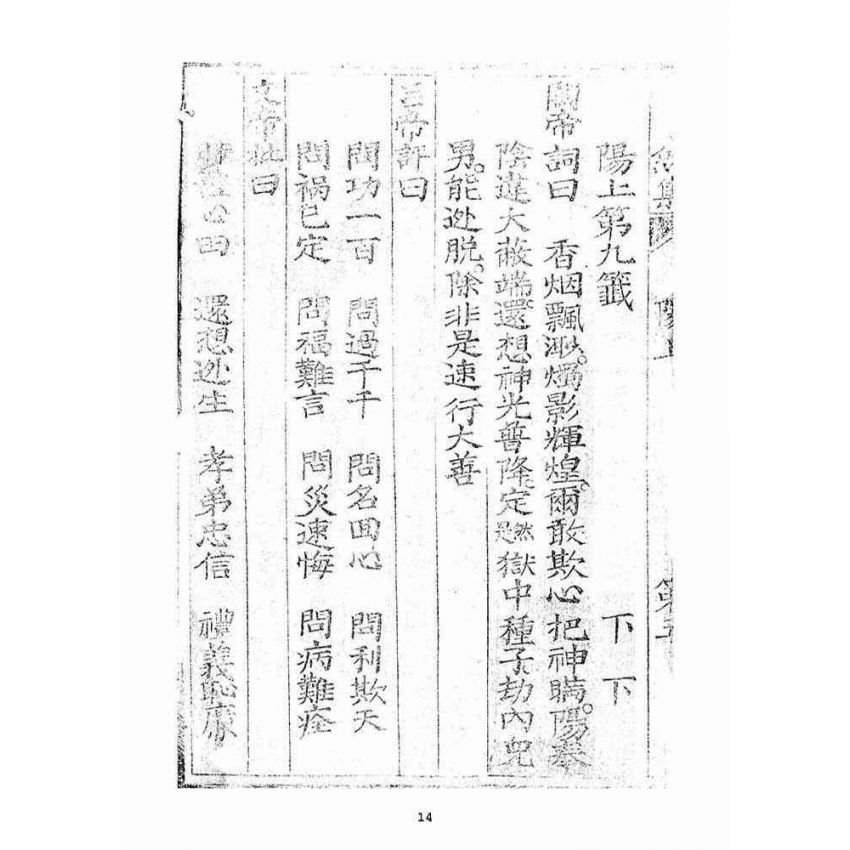 陽上第九籤 下下
關帝詞曰 香烟飄渺。燭影輝煌。爾敢欺心把神瞞。陽奉
陰違大蔽端。還想神光普降。定然是獄中種子。劫內兇
男。能迯脫。除非是速行大善
呂帝評曰
問功一百 問過千千 問名回心 問利欺天
問禍已定 問福難言 問災速悔 問病難痊
文帝批曰
心田 還想迯生 孝弟忠信 禮義恥廉
14